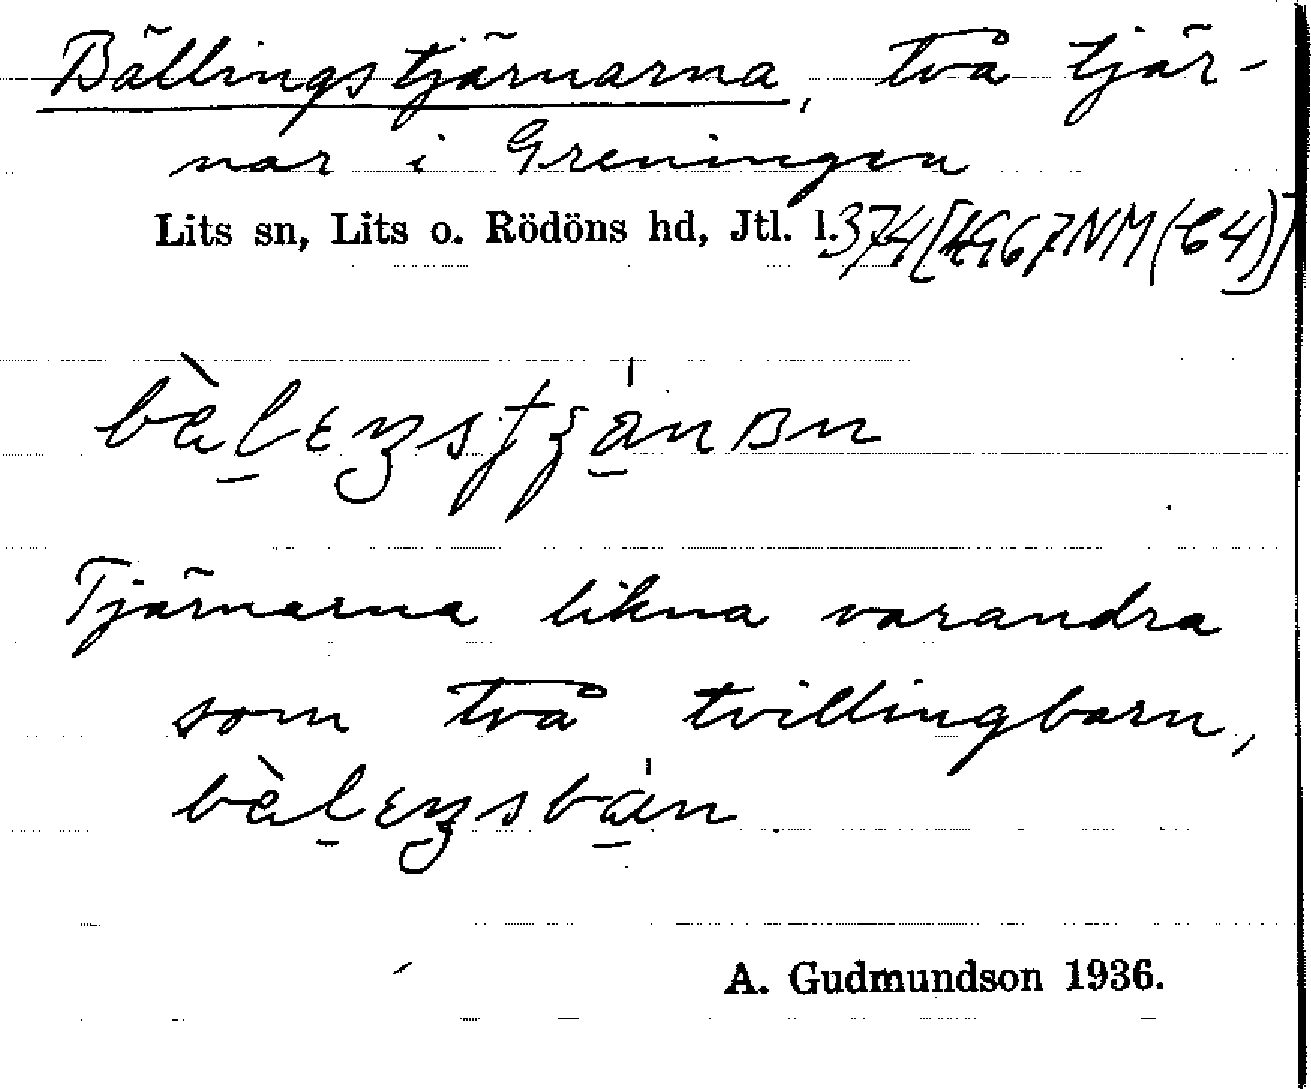 Bällingstjärnarna, två tjär-
nar i Greningen
Lits sn, Lits o. Rödöns hd, Jtl. l. 374 [4967NM(64)]
Tjärnarna likna varandra
som två tvillingbarn,
A. Gudmundson 1936.